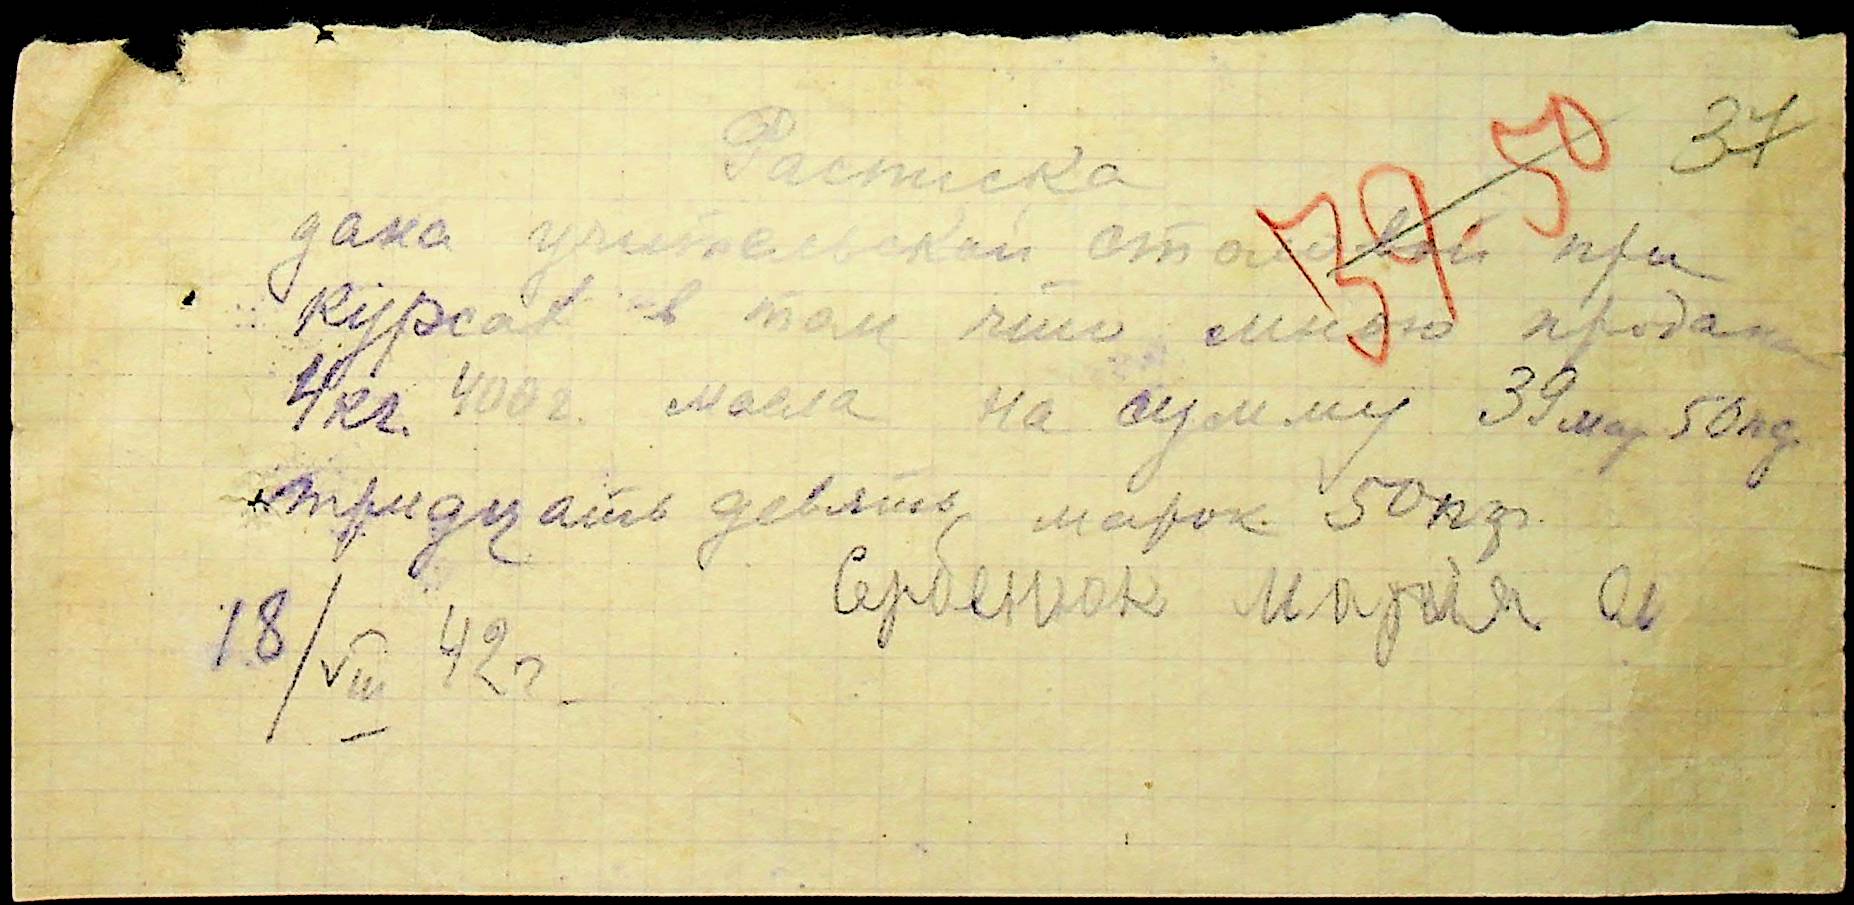 37
39-50
Расписка
дана учительской столовой при
курсах в том что мною продано
4кг. 400г. масла на сумму 39мар 50пф.
тридцать девять марок 50пф.
Сербенюк Мария
18/VIII 42г.